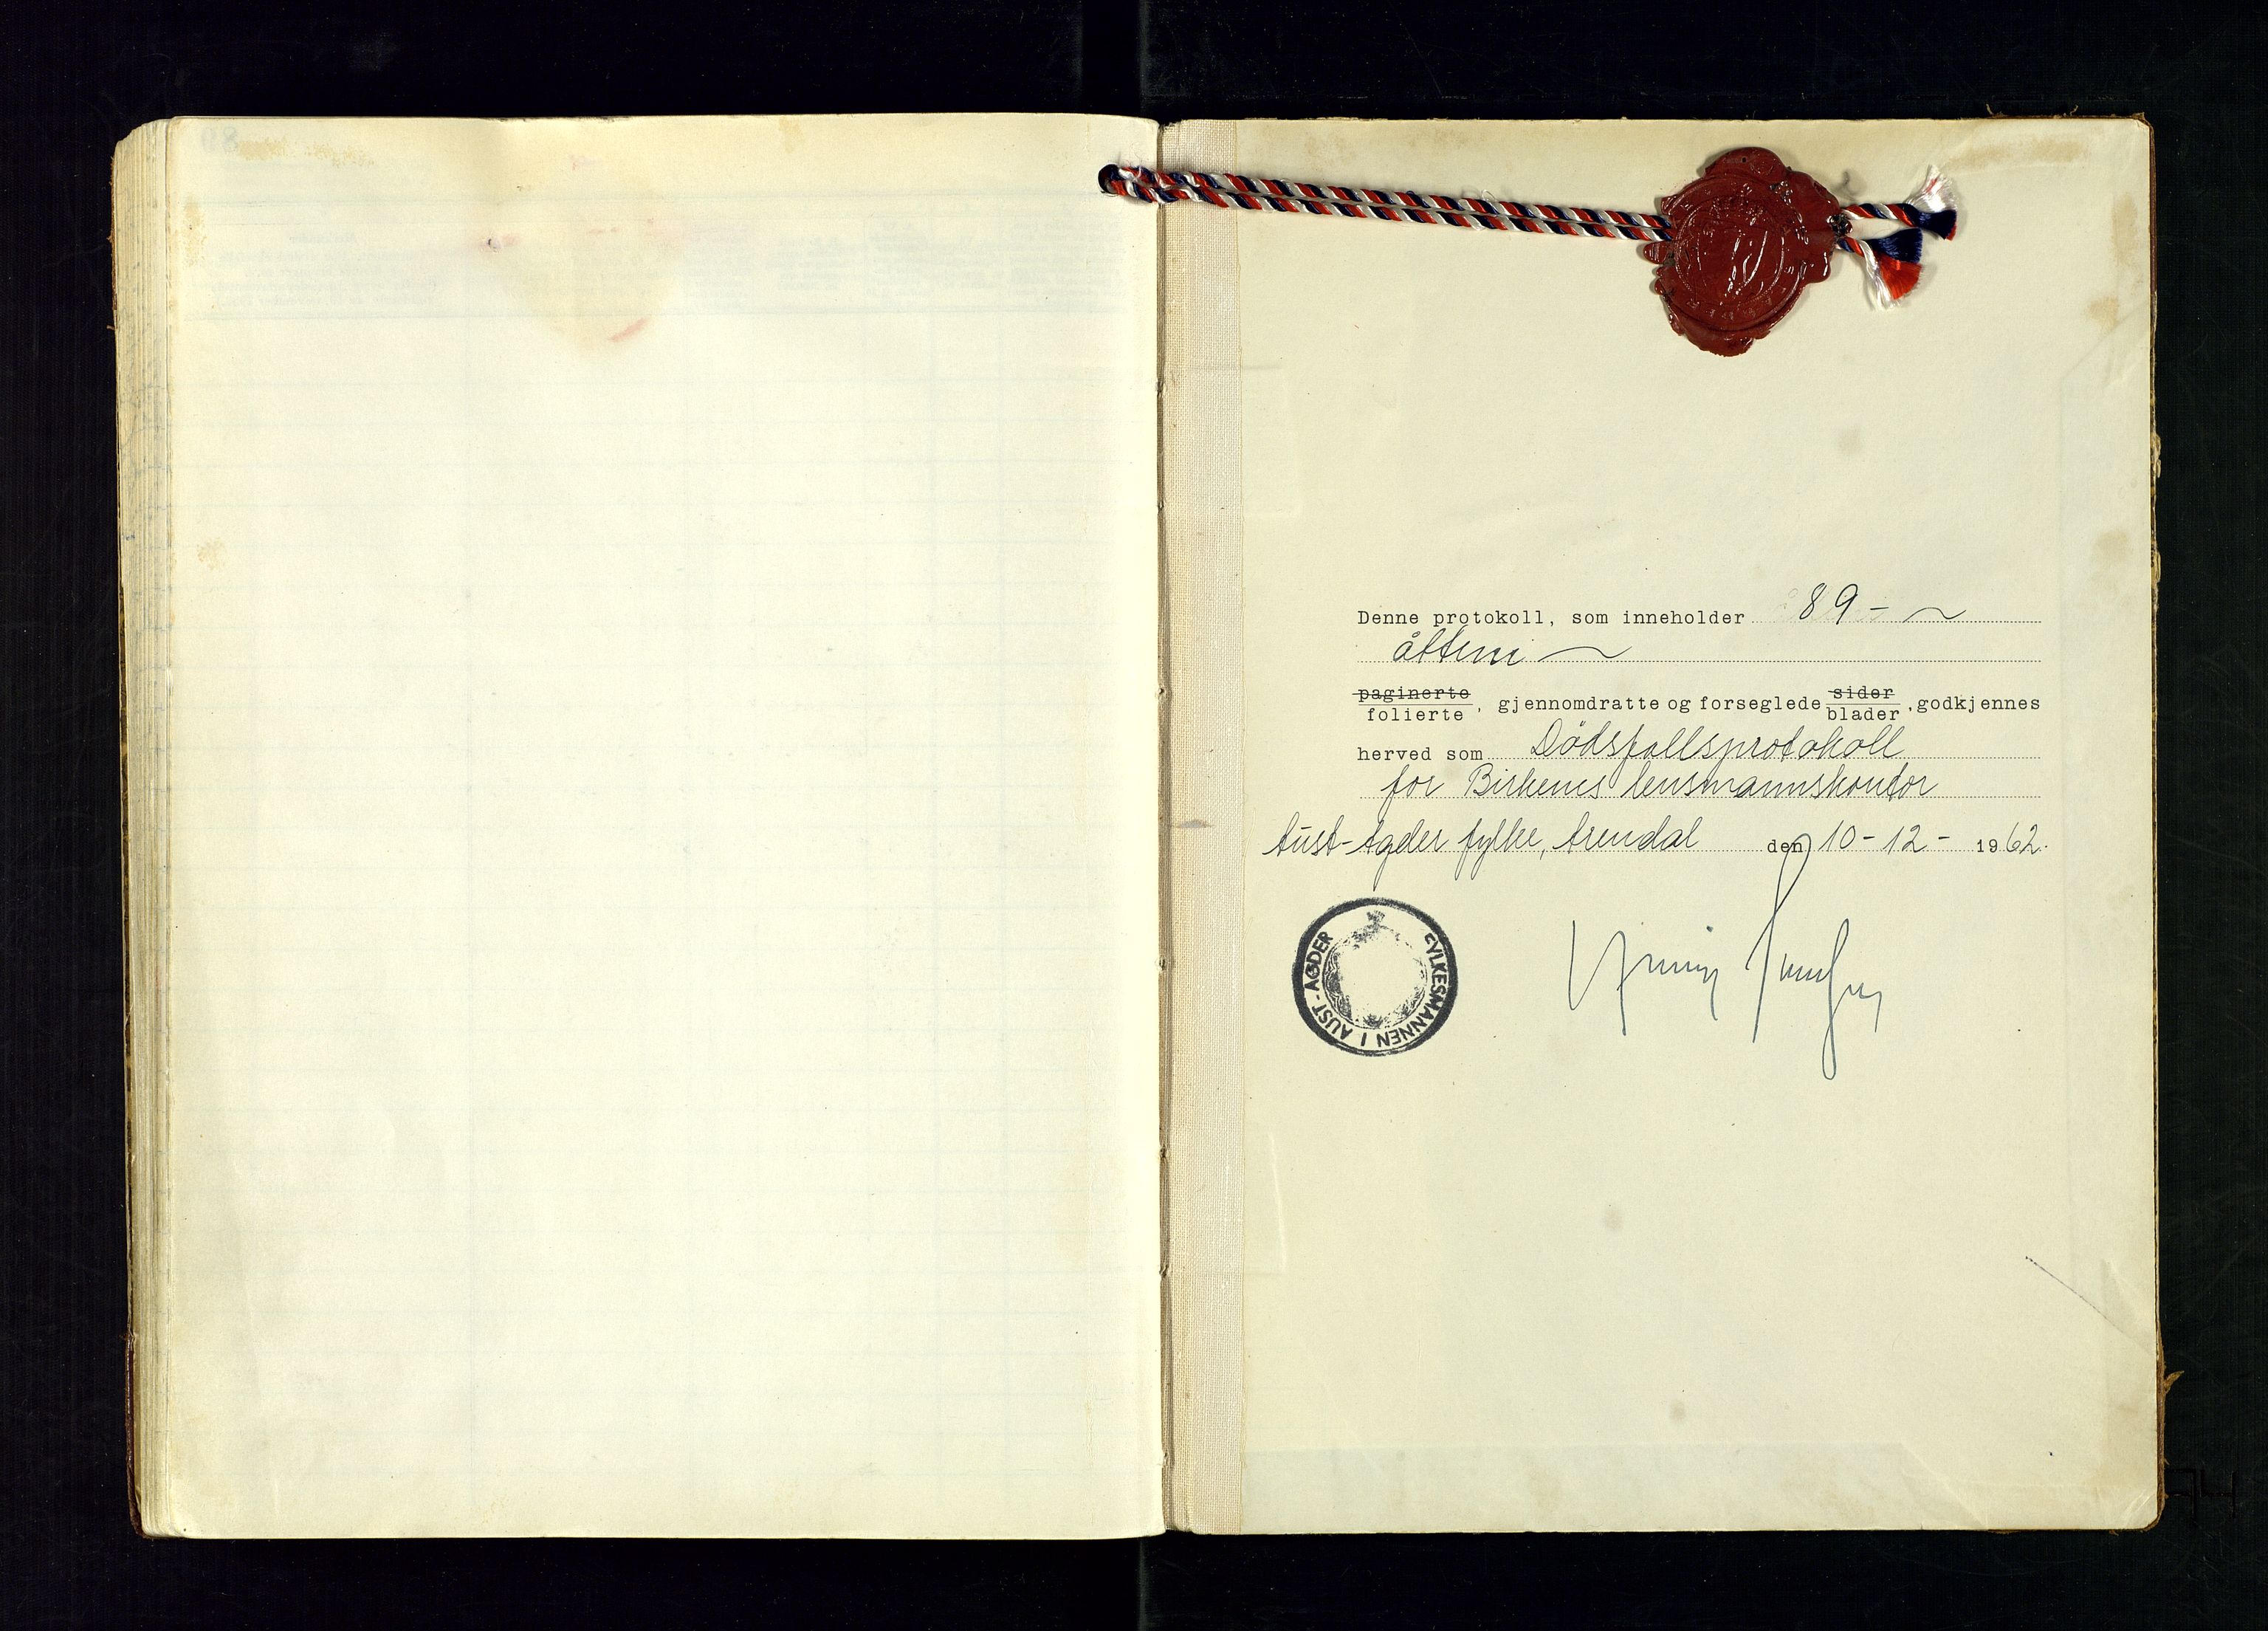 Denne protokoll, som inneholder 89-
åtteni
paginerte
folierte, gjennomdratte og forseglede sider
blader, godkjennes
herved som Dødsfallsprotokoll
for Birkenes lensmannskontor
Aust-Agder fylke, Arendal den 10-12- 1962.
FYLKESMANNEN I AUST-AGDER